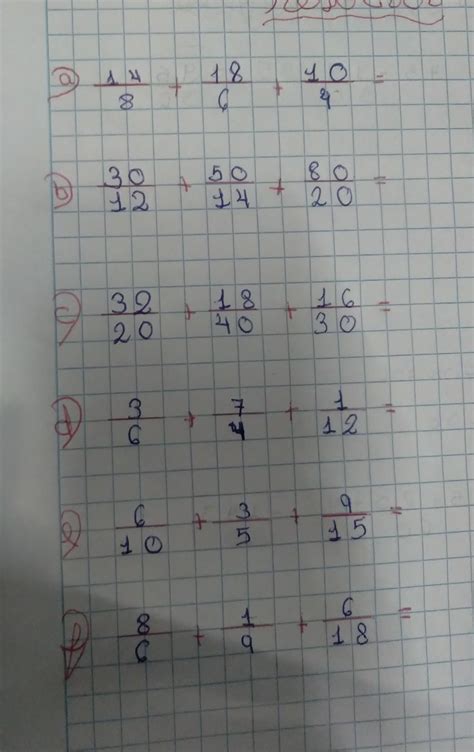 a) 14/8 + 18/6 + 10/4 =
b) 30/12 + 50/14 + 80/20 =
c) 32/20 + 18/40 + 16/30 =
d) 3/6 + 7/4 + 1/12 =
e) 6/10 + 3/5 + 9/15 =
f) 8/6 + 1/9 + 6/18 =